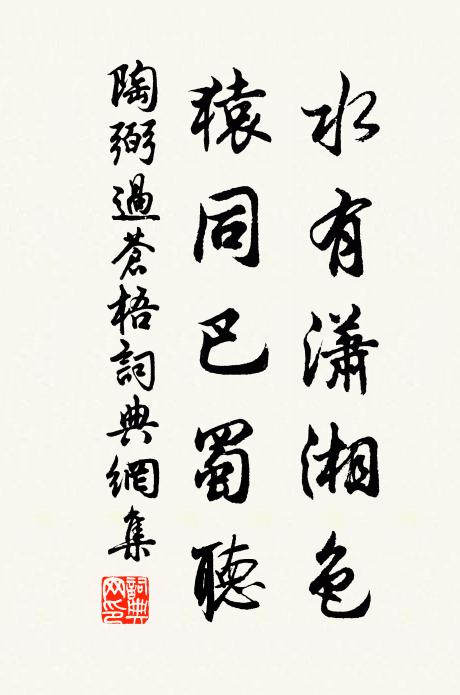 水有瀟湘色
猿同巴蜀聽
陶弼過蒼梧詞典網集
詞典網印